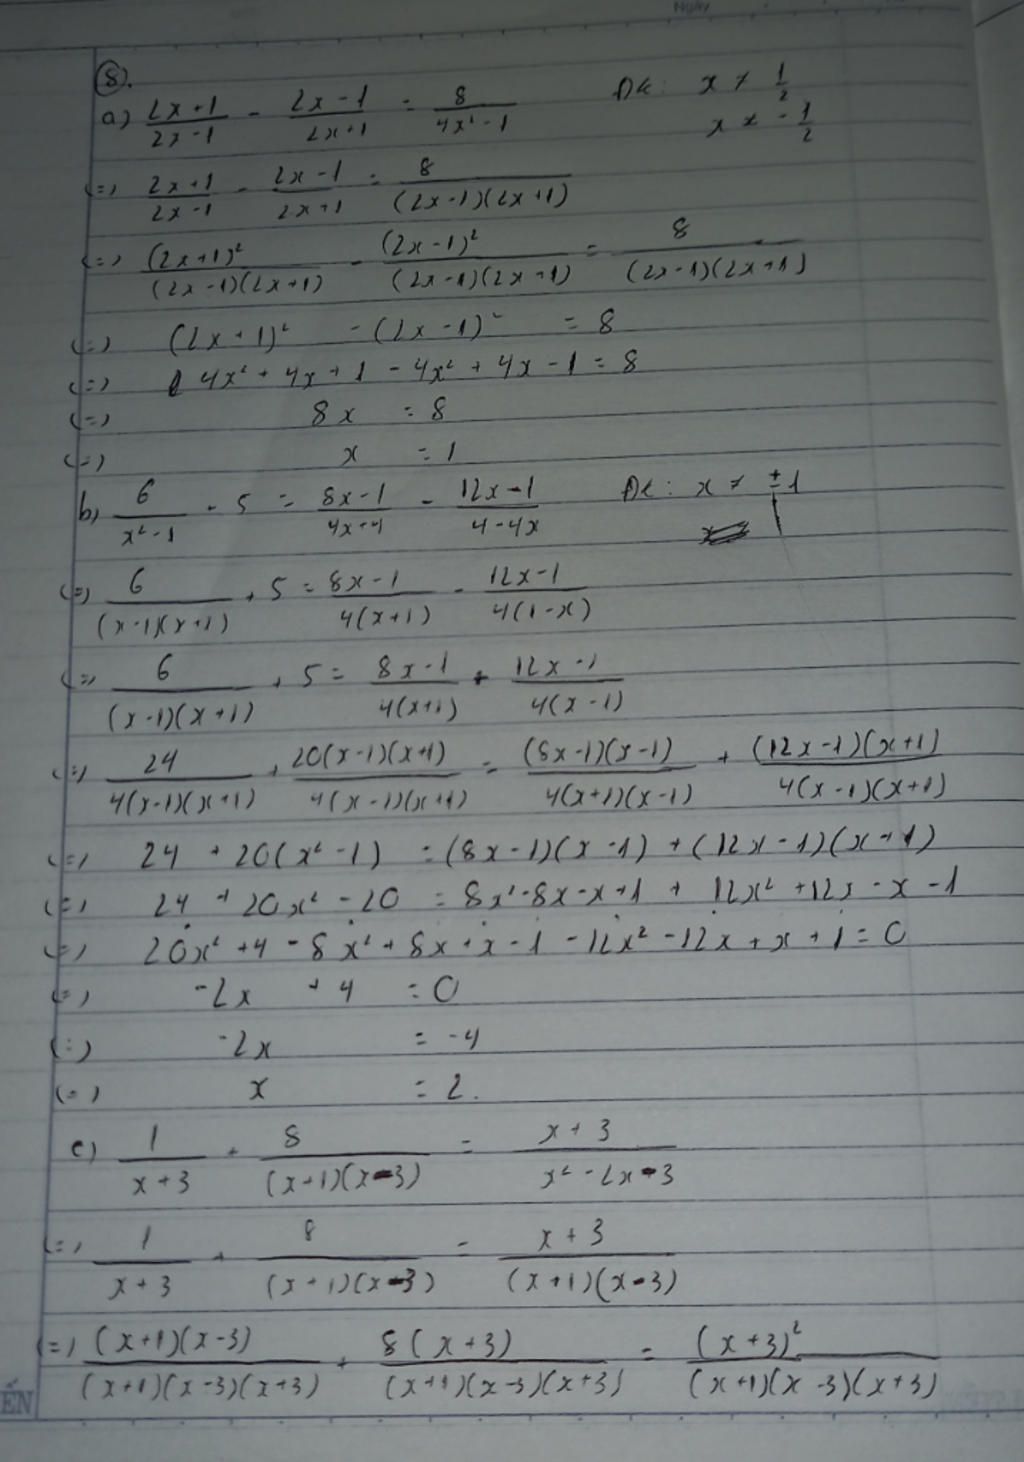 Ngày
8.
a) (2x+1)/(2x-1) - (2x-1)/(2x+1) = 8/(4x²-1) ĐK: x ≠ 1/2
x ≠ -1/2
(=) (2x+1)/(2x-1) - (2x-1)/(2x+1) = 8/((2x-1)(2x+1))
(=) (2x+1)²/((2x-1)(2x+1)) - (2x-1)²/((2x-1)(2x+1)) = 8/((2x-1)(2x+1))
(=) (2x+1)² - (2x-1)² = 8
(=) 4x² + 4x + 1 - 4x² + 4x - 1 = 8
(=) 8x = 8
(=) x = 1
b) 6/(x²-1) + 5 = (8x-1)/(4x+4) - (12x-1)/(4-4x) ĐK: x ≠ ±1
(=) 6/((x-1)(x+1)) + 5 = (8x-1)/(4(x+1)) - (12x-1)/(4(1-x))
(=) 6/((x-1)(x+1)) + 5 = (8x-1)/(4(x+1)) + (12x-1)/(4(x-1))
(=) 24/(4(x-1)(x+1)) + 20(x-1)(x+1)/(4(x-1)(x+1)) = (8x-1)(x-1)/(4(x+1)(x-1)) + (12x-1)(x+1)/(4(x-1)(x+1))
(=) 24 + 20(x²-1) = (8x-1)(x-1) + (12x-1)(x+1)
(=) 24 + 20x² - 20 = 8x²-8x-x+1 + 12x² +12x - x - 1
(=) 20x² + 4 - 8x² + 8x + x - 1 - 12x² - 12x + x + 1 = 0
(=) -2x + 4 = 0
(=) -2x = -4
(=) x = 2.
c) 1/(x+3) + 8/((x+1)(x-3)) = (x+3)/(x²-2x-3)
(=) 1/(x+3) + 8/((x+1)(x-3)) = (x+3)/((x+1)(x-3))
(=) (x+1)(x-3)/((x+1)(x-3)(x+3)) + 8(x+3)/((x+1)(x-3)(x+3)) = (x+3)²/((x+1)(x-3)(x+3))
ẾN